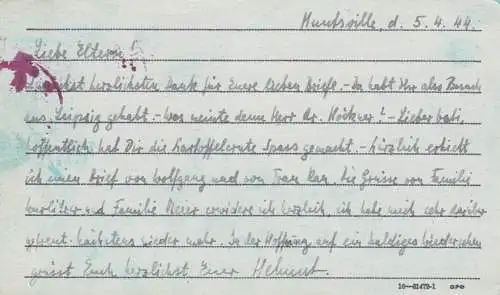 Huntsville, d. 5.4.44.
Liebe Eltern!
Zunächst herzlichsten Dank für Euere lieben Briefe. - Da habt Ihr also Besuch
aus Leipzig gehabt. - Was meinte denn Herr Dr. - Lieber Vati,
hoffentlich hat Dir die Kartoffelernte Spass gemacht. - Kürzlich erhielt
ich einen Brief von Wolfgang und von Frau Die Grüsse von Familie
und Familie Meier erwidere ich herzlich, ich habe mich sehr darüber
gefreut. Nächstens wieder mehr. In der Hoffnung auf ein baldiges Wiedersehen
grüsst Euch herzlichst Euer Helmut.
16—61479-1 GPO